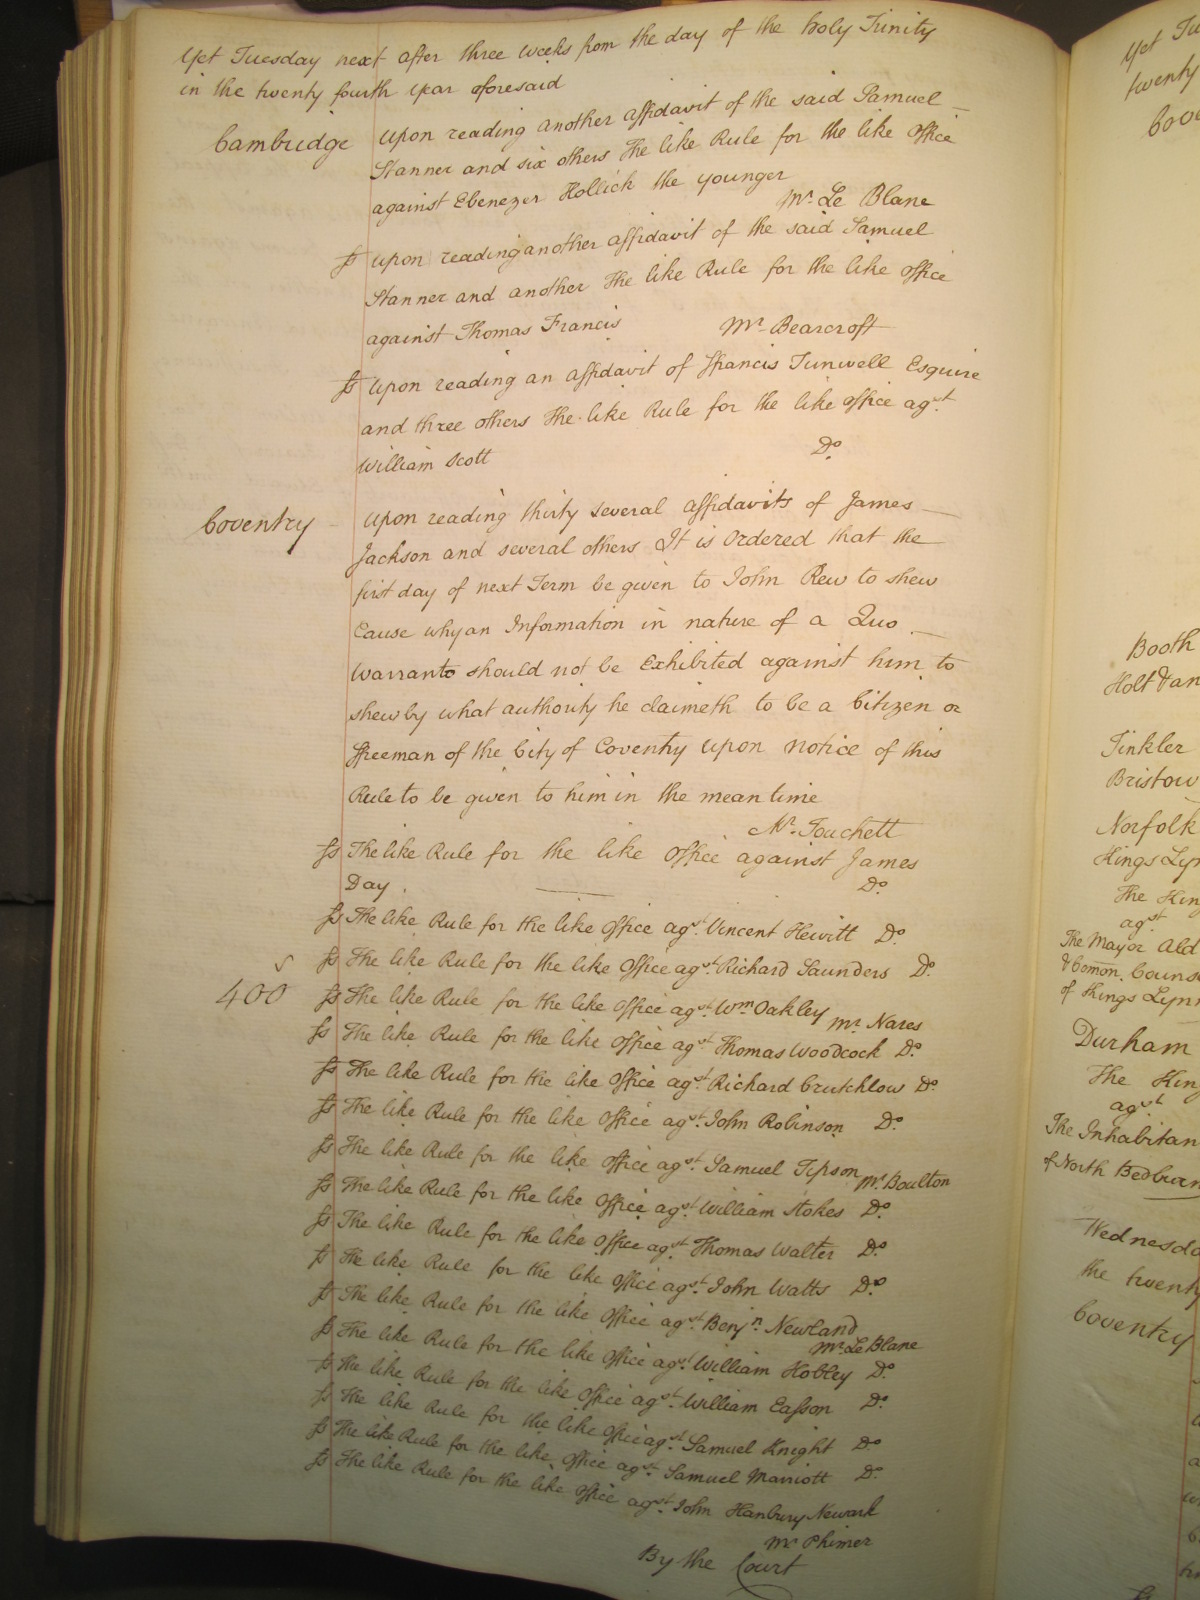 Yet Tuesday next after three weeks from the day of the holy Trinity
in the twenty fourth year aforesaid
Cambridge upon reading another affidavit of the said Samuel
Stanner and six others The like Rule for the like Office
against Ebenezer Hollick the younger
Mr. Le Blanc
Js upon reading another affidavit of the said Samuel
Stanner and another The like Rule for the like Office
against Thomas Francis Mr. Bearcroft
Js upon reading an affidavit of ffrancis Tunwell Esquire
and three others The like Rule for the like office agst.
William Scott Do.
Coventry upon reading thirty several affidavits of James
Jackson and several others It is Ordered that the
first day of next Term be given to John Rew to shew
Cause why an Information in nature of a Quo
Warranto should not be Exhibited against him to
shew by what authority he claimeth to be a Citizen or
ffreeman of the City of Coventry upon notice of this
Rule to be given to him in the mean time
Mr. Touchett
Js The like Rule for the like Office against James
Day Do.
Js The like Rule for the like Office agst. Vincent Hewitt Do.
Js The like Rule for the like Office agst. Richard Saunders Do.
400 Js The like Rule for the like Office agst. Wm. Oakley Mr. Nares
Js The like Rule for the like Office agst. Thomas Woodcock Do.
Js The like Rule for the like Office agst. Richard Crutchlow Do.
Js The like Rule for the like Office agst. John Robinson Do.
Js The like Rule for the like Office agst. Samuel Tipson Mr. Boulton
Js The like Rule for the like Office agst. William Stokes Do.
Js The like Rule for the like Office agst. Thomas Walter Do.
Js The like Rule for the like Office agst. John Watts Do.
Js The like Rule for the like Office agst. Benjn. Newland
Mr. Le Blanc
Js The like Rule for the like Office agst. William Hobley Do.
Js The like Rule for the like Office agst. William Easson Do.
Js The like Rule for the like Office agst. Samuel Knight Do.
Js The like Rule for the like Office agst. Samuel Marriott Do.
Js The like Rule for the like Office agst. John Hanbury Newark
Mr. Phimer
By the Court
Yet
twenty
Booth
Holt
Tinkler
Bristow
Norfolk
Kings
The
agst
The Mayor
of Kings Lynn
Durham
The
agst
The
of North
the
Coventry